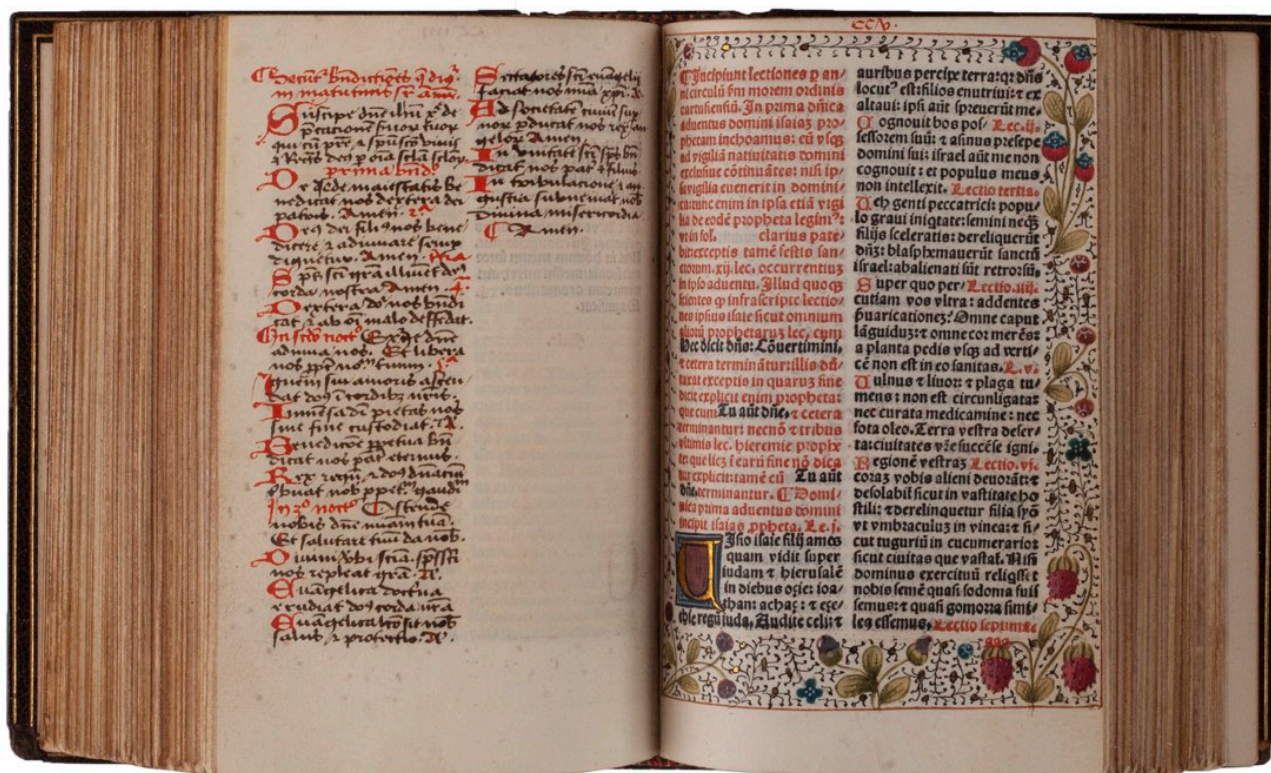 Suscipe dne
qui cu pre & spusco viuis
& Regnas
prima
De sede maiestatis be
nedicat nos dextera dei
patris. Amen. 2ᵃ
Deus dei filius nos bene
dicere & adiuuare
dignetur. Amen.
Spus sci gra illuiet
corda nostra Amen. 4
Dextera nos
cat & ab oi malo deffedat.
dne
adiuua nos. Et libera
nos
Ignem sui amoris
dat
Inmensa dei pietas nos
sine fine custodiat. R.
ppetua
dicat nos pat eternus.
Rex regu &
nob gaudiu
In 3º noct Ostende
nobis dne miam tua.
Et salutare tuu da nob.
Diuini
nos repleat gra. R.
Euagelica doctrina
erudiat corda
Euagelica sit nob
salus & protectio. R.
Sectatores sci euagelii
faciat nos
Ad societatem ciuiu sup
nor pducat nos rex an
gelor Amen
In vnitate sci sps
dicat nos pat & filius.
In tribulacione & an
gustia subueniat nob
Diuina misericordia
Amen.
CCV.
¶Incipiunt lectiones p an/
ni circulũ ẜm morem ordinis
cartusiensiũ. In prima dñica
aduentus domini isaiaz pro/
phetam inchoamus: eũ vsqꝫ
ad vigiliã natiuitatis domini
exclusiue cõtinuãtes: nisi ip/
sa vigilia euenerit in domini/
ca: tunc enim in ipsa etiã vigi
lia de eodẽ propheta legimꝰ:
vt in sol. clarius pate/
bit: exceptis tamẽ festis san/
ctorum. xij. lec. occurrentiuꝫ
in ipso aduentu. Illud quoqꝫ
scientes ꝙ infrascripte lectio/
nes ipsius isaie sicut omnium
aliorũ prophetaruꝫ lec. cum
Hec dicit dñs: Cõuertimini,
et cetera terminãtur: illis dũ/
taxat exceptis in quaruꝫ fine
dicit explicit enim propheta:
que cum Tu aũt dñe, ⁊ cetera
terminantur: necnõ ⁊ tribus
vltimis lec. hieremie prophe
te: que licꝫ ĩ earũ fine nõ dica
tur explicit: tamẽ cũ Tu aũt
dñe. terminantur. ¶Domi/
nica prima aduentus domini
incipit isaias ꝓpheta. Le. j.
VIsio isaie filij amos
quam vidit super
iudam ⁊ hierusalẽ
in diebus oꝫie: ioa/
than: achaꝫ: ⁊ eꝫe/
chie regũ iuda, Audite celi: ⁊
auribus percipe terra: qꝛ dñs
locutꝰ est: filios enutriui: ⁊ ex
altaui: ipsi aũt spreuerũt me.
Cognouit bos pos/ Lec. ij.
sessorem suũ: ⁊ asinus presepe
domini sui: israel aũt me non
cognouit: et populus meus
non intellexit. Lectio tertia.
Ueh genti peccatrici: popu/
lo graui iniqtate: semini neqꝫ
filijs sceleratis: dereliquerũt
dñꝫ: blasphemauerũt sanctũ
israel: abalienati sũt retrorsũ,
Super quo per/ Lectio. iiij.
cutiam vos vltra: addentes
ꝑuaricationeꝫ? Omne caput
lãguiduꝫ: ⁊ omne cor merẽs:
a planta pedis vsqꝫ ad verti/
cẽ non est in eo sanitas. L. v.
Uulnus ⁊ liuor: ⁊ plaga tu/
mens: non est circunligata:
nec curata medicamine: nec
fota oleo. Terra vestra deser/
ta: ciuitates vr̃e succẽse igni.
Regionẽ vestraꝫ Lectio. vj.
coraꝫ vobis alieni deuorãt: ⁊
desolabit̃ sicut in vastitate ho
stili: ⁊ derelinquetur filia syõ
vt vmbraculuꝫ in vinea: ⁊ si/
cut tuguriũ in cucumerario:
sicut ciuitas que vastat̃. Nisi
dominus exercituũ reliqsset
nobis semẽ quasi sodoma fuis
semus: ⁊ quasi gomorra simi/
les essemus, Lectio septima.